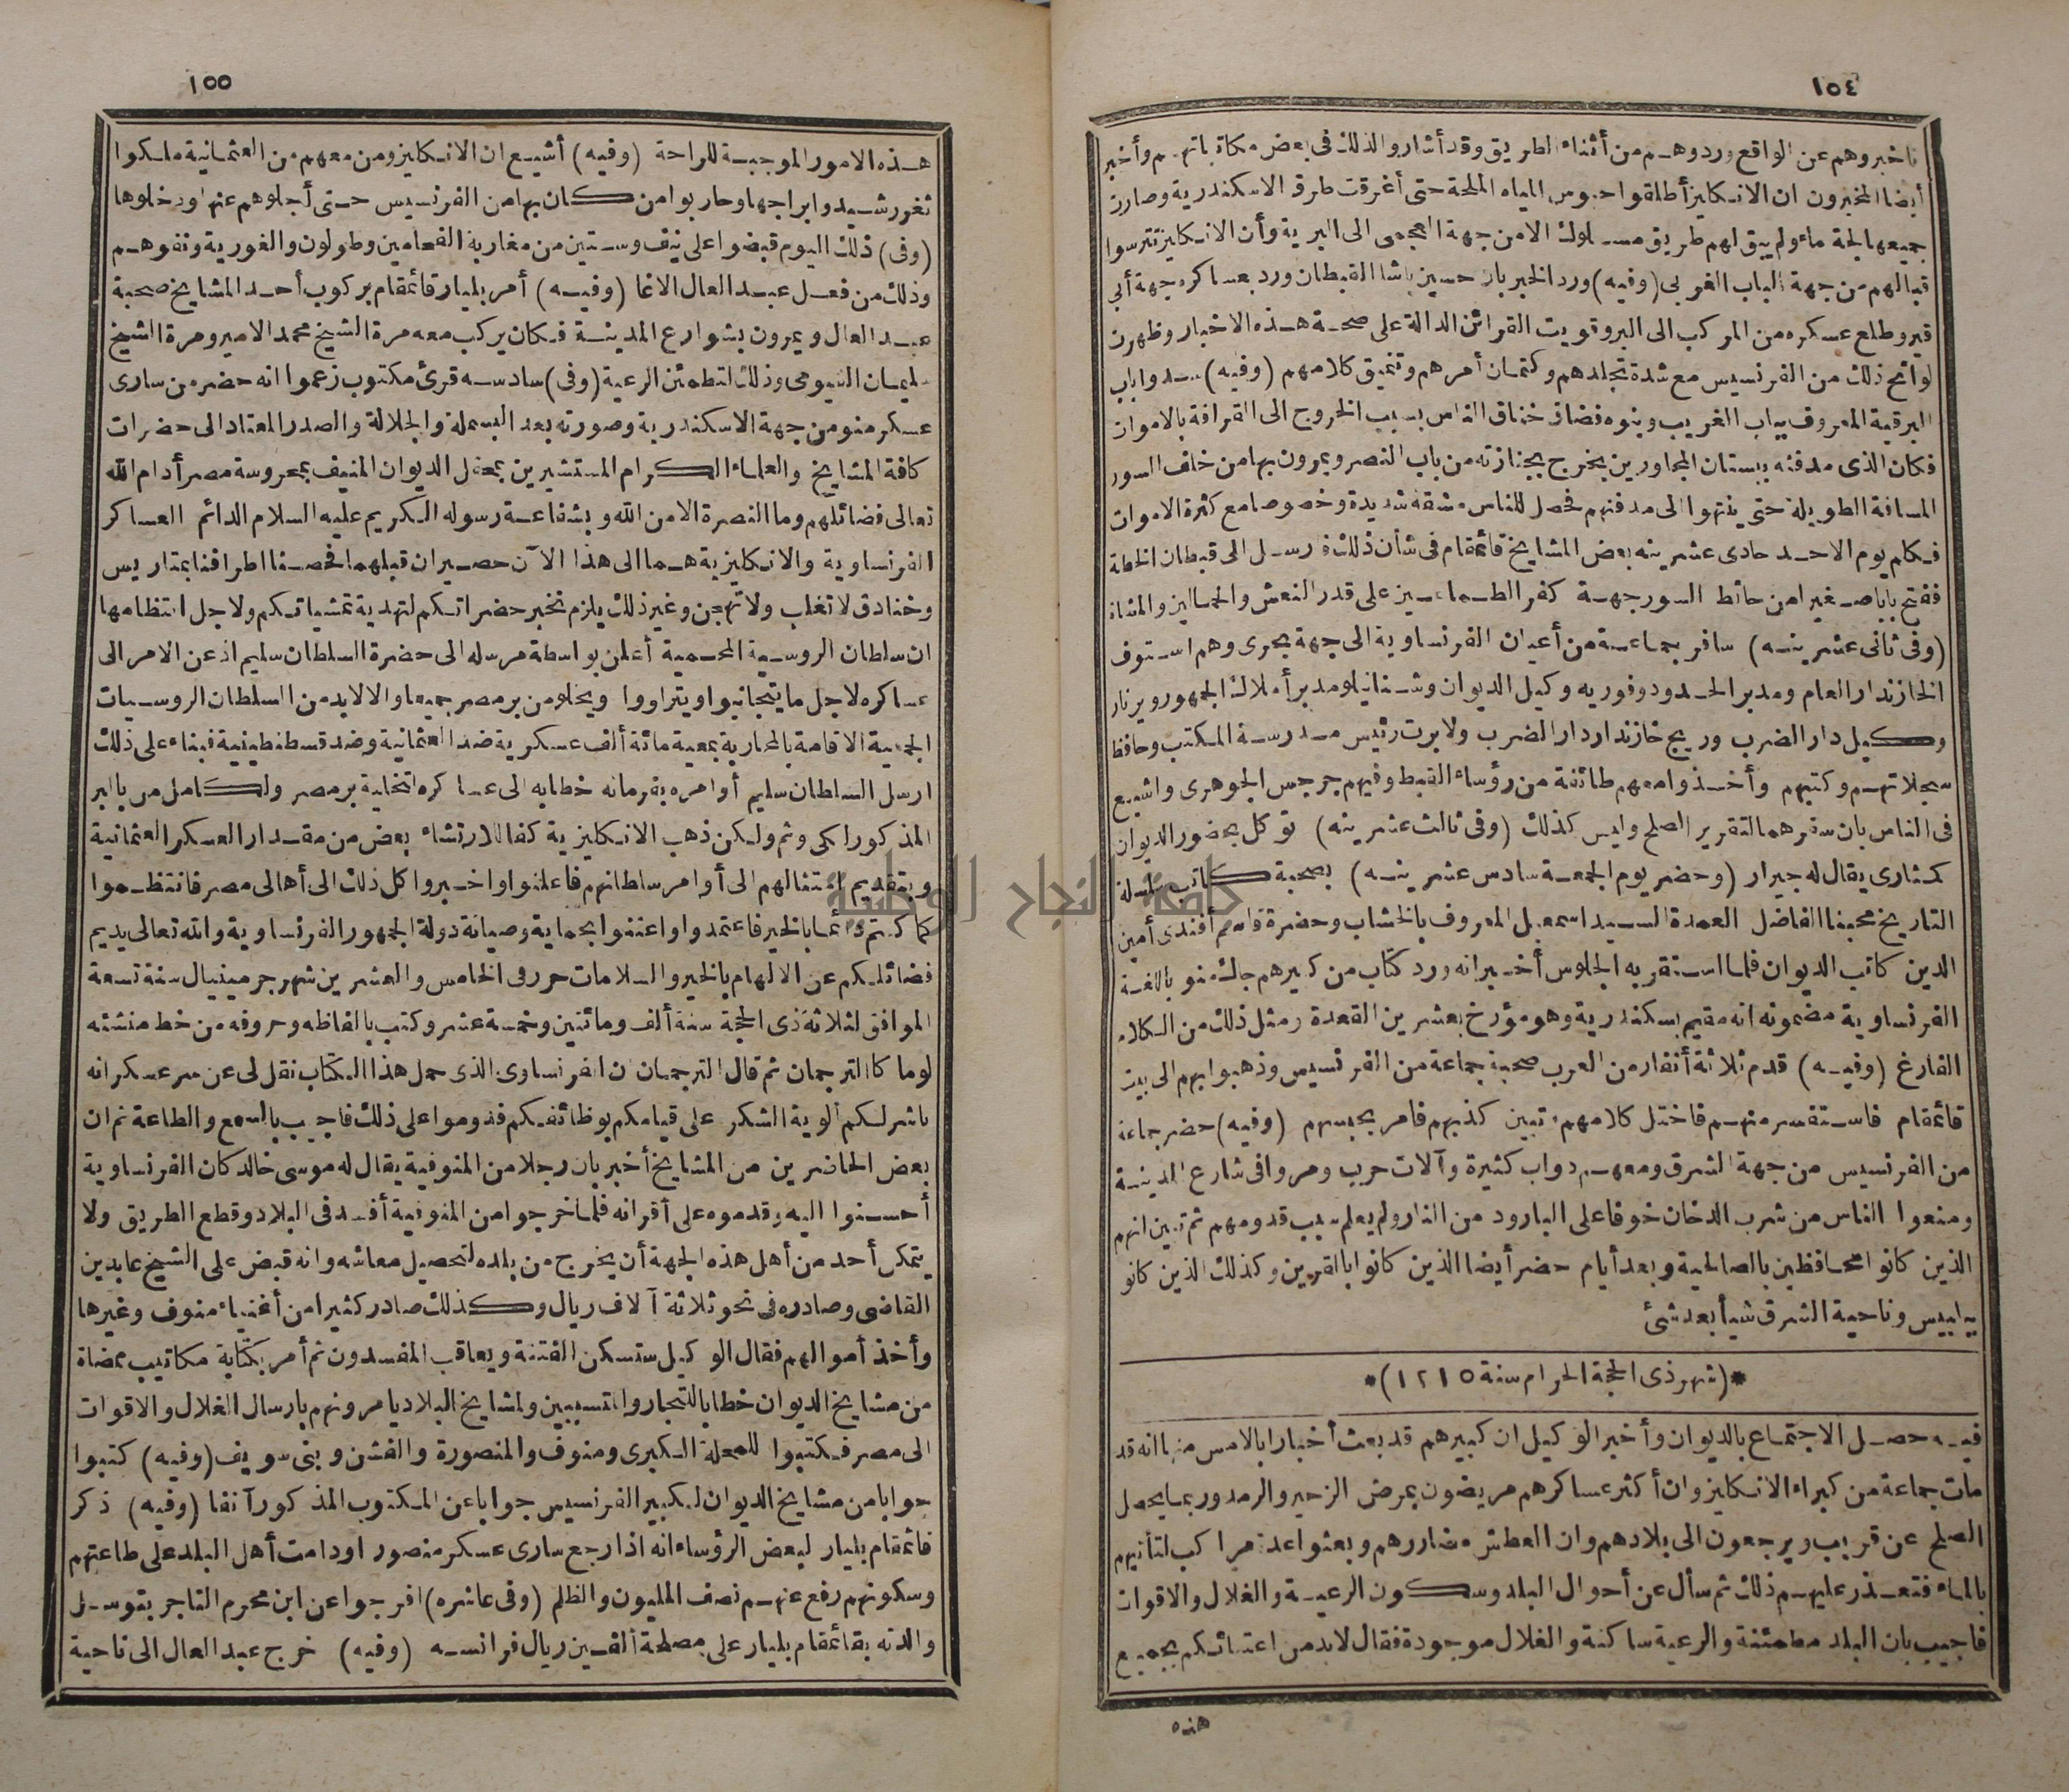 ١٥٤
فاخبروهم عن الواقع وردوهم من أثناء الطريق وقد أشاروا لذلك فى بعض مكاتباتهم وأخبر
أيضا المخبرون ان الانكليز أطلقوا حبوس المياه المالحة حتى أغرقت طرق الاسكندرية وصارت
جميعها لجة ماء ولم يبق لهم طريق مسلوك الا من جهة العجمى الى البرية وأن الانكليز تترسوا
قبالهم من جهة الباب الغربى (وفيه) ورد الخبر بان حسين باشا القبطان ورد بعساكره جهة أبى
قير وطلع عسكره من المركب الى البر وقويت القرائن الدالة على صحة هذه الاخبار وظهرت
لوائح ذلك من الفرنسيس مع شدة تجلدهم وكتمان أمرهم وتنميق كلامهم (وفيه) سدوا باب
البرقية المعروف بباب الغريب وبنوه فضاق خناق الناس بسبب الخروج الى القرافة بالاموات
فكان الذى مدفنه ببستان المجاورين يخرج بجنازته من باب النصر ويمرون بها من خلف السور
المسافة الطويلة حتى ينتهوا الى مدفنهم فحصل للناس مشقة شديدة وخصوصا مع كثرة الاموات
فكلم يوم الاحد حادى عشرينه بعض المشايخ قائمقام فى شأن ذلك فارسل الى قبطان الخطة
ففتح بابا صغيرا من حائط السور جهة كفر الطماعين على قدر النعش والحمالين والمشاة
(وفى ثانى عشرينه) سافر جماعة من أعيان الفرنساوية الى جهة بحرى وهم استوف
الخازندار العام ومدبر الحدود وفوريه وكيل الديوان وشنانيلو مدبر أملاك الجمهور وبرنار
وكيل دار الضرب وريج خازندار دار الضرب ولابرت رئيس مدرسة المكتب وحافظ
سجلاتهم وكتبهم وأخذوا معهم طائفة من رؤساء القبط وفيهم جرجس الجوهرى واشيع
فى الناس بان سفرهم لتقرير الصلح وليس كذلك (وفى ثالث عشرينه) توكل بحضور الديوان
كمثارى يقال له جيرار (وحضر يوم الجمعة سادس عشرينه) بصحبة كاتب سلسلة
التاريخ محبنا الفاضل العمدة السيد اسمعيل المعروف بالخشاب وحضرة قاسم أفندى أمين
الدين كاتب الديوان فلما استقر به الجلوس أخبر انه ورد كتاب من كبيرهم جاك منو باللغة
الفرنساوية مضمونه انه مقيم بسكندرية وهو مؤرخ بعشرين القعدة ومثل ذلك من الكلام
الفارغ (وفيه) قدم ثلاثة أنفار من العرب صحبة جماعة من الفرنسيس وذهبوا بهم الى بيت
قائمقام فاستفسر منهم فاختل كلامهم وتبين كذبهم فامر بحبسهم (وفيه) حضر جماعة
من الفرنسيس من جهة الشرق ومعهم دواب كثيرة وآلات حرب ومروا فى شارع المدينة
ومنعوا الناس من شرب الدخان خوفا على البارود من النار ولم يعلم سبب قدومهم ثم تبين انهم
الذين كانوا محافظين بالصالحية وبعد أيام حضر أيضا الذين كانوا بالقرين وكذلك الذين كانوا
ببلبيس وناحية الشرق شيأ بعد شئ
*(شهر ذى الحجة الحرام سنة ١٢١٥)*
فيه حصل الاجتماع بالديوان وأخبر الوكيل ان كبيرهم قد بعث أخبارا بالامس منها انه قد
مات جماعة من كبراء الانكليز وان أكثر عساكرهم مريضون بمرض الزحير والرمد وربما يحصل
الصلح عن قريب ويرجعون الى بلادهم وان العطش مضاررهم وبعثوا عدة مراكب لتأتيهم
بالماء فتعذر عليهم ذلك ثم سأل عن أحوال البلد وسكون الرعية والغلال والاقوات
فاجيب بان البلد مطمئنة والرعية ساكنة والغلال موجودة فقال لابد من اعتنائكم بجميع
هذه
١٥٥
هذه الامور الموجبة للراحة (وفيه) أشيع ان الانكليز ومن معهم من العثمانية ملكوا
ثغر رشيد وابراجها وحاربوا من كان بها من الفرنسيس حتى أجلوهم عنها ودخلوها
(وفى) ذلك اليوم قبضوا على نيف وستين من مغاربة الفحامين وطولون والغورية ونفوهم
وذلك من فعل عبد العال الاغا (وفيه) أمر بليار قائمقام بركوب أحد المشايخ صحبة
عبد العال ويمرون بشوارع المدينة فكان يركب معه مرة الشيخ محمد الامير ومرة الشيخ
سليمان الفيومى وذلك لتطمئن الرعية (وفى) سادسه قرئ مكتوب زعموا انه حضر من سارى
عسكر منو من جهة الاسكندرية وصورته بعد البسملة والجلالة والصدر المعتاد الى حضرات
كافة المشايخ والعلماء الكرام المستشيرين بمحفل الديوان المنيف بمحروسة مصر أدام الله
تعالى فضائلهم وما النصرة الا من الله وبشفاعة رسوله الكريم عليه السلام الدائم العساكر
الفرنساوية والانكليزية هما الى هذا الآن حصيران قبلهما فحصنا اطرافنا بمتاريس
وخنادق لا تغلب ولا تهجن وغير ذلك يلزم نخبر حضراتكم لتهدية تمشياتكم ولاجل انتظامها
ان سلطان الروسية المحمية أعلن بواسطة مرسله الى حضرة السلطان سليم اذعن الامر الى
عساكره لاجل ما يتجانبوا ويتراووا ويخلو من بر مصر جميعا والا لابد من السلطان الروسيات
الجمية الاقامة بالمحاربة بمعية مائة ألف عسكرية ضد العثمانية وضد قسطنطينية فبناء على ذلك
ارسل السلطان سليم أوامره بفرمانه خطابه الى عساكره لتخلية بر مصر ولكامل من بالبر
المذكور الكى وثم ولكن ذهب الانكليزية كفا للارتشاء بعض من مقدار العسكر العثمانية
وبتقديم امتثالهم الى أوامر سلطانهم فاعلنوا واخبروا كل ذلك الى أهالى مصر فانتظموا
كما كنتم دائما بالخير فاعتمدوا واعتنوا بحماية وصيانة دولة الجمهور الفرنساوية والله تعالى يديم
فضائلكم عن الالهام بالخير والسلامات حرر فى الخامس والعشرين شهر جرمينيال سنة تسعة
الموافق لثلاثة ذى الحجة سنة ألف ومائتين وخمسة عشر وكتب بالفاظه وحروفه من خط منشئه
لوماكا الترجمان ثم قال الترجمان ان الفرنساوى الذى حمل هذا الكتاب نقل لى عن سر عسكر انه
ناشر لكم ألوية الشكر على قيامكم بوظائفكم فدوموا على ذلك فاجيب بالسمع والطاعة ثم ان
بعض الحاضرين من المشايخ أخبر بان رجلا من المنوفية يقال له موسى خالد كان الفرنساوية
أحسنوا اليه وقدموه على أقرانه فلما خرجوا من المنوفية أفسد فى البلاد وقطع الطريق ولا
يتمكن أحد من أهل هذه الجهة أن يخرج من بلده لتحصيل معاشه وانه قبض على الشيخ عابدين
القاضى وصادره فى نحو ثلاثة آلاف ريال وكذلك صادر كثيرا من أغنياء منوف وغيرها
وأخذ أموالهم فقال الوكيل ستسكن الفتنة ويعاقب المفسدون ثم أمر بكتابة مكاتيب ممضاة
من مشايخ الديوان خطابا للتجار والمتسببين ولمشايخ البلاد يامرونهم بارسال الغلال والاقوات
الى مصر فكتبوا للمحلة الكبرى ومنوف والمنصورة والفشن وبنى سويف (وفيه) كتبوا
جوابا من مشايخ الديوان لكبير الفرنسيس جوابا عن المكتوب المذكور آنفا (وفيه) ذكر
قائمقام بليار لبعض الرؤساء انه اذا رجع سارى عسكر منصورا ودامت أهل البلد على طاعتهم
وسكونهم رفع عنهم نصف المليون والظلم (وفى عاشره) افرجوا عن ابن محرم التاجر بتوسل
والدته بقائمقام بليار على مصلحة ألفين ريال فرانسه (وفيه) خرج عبد العال الى ناحية
جامعة النجاح الوطنية